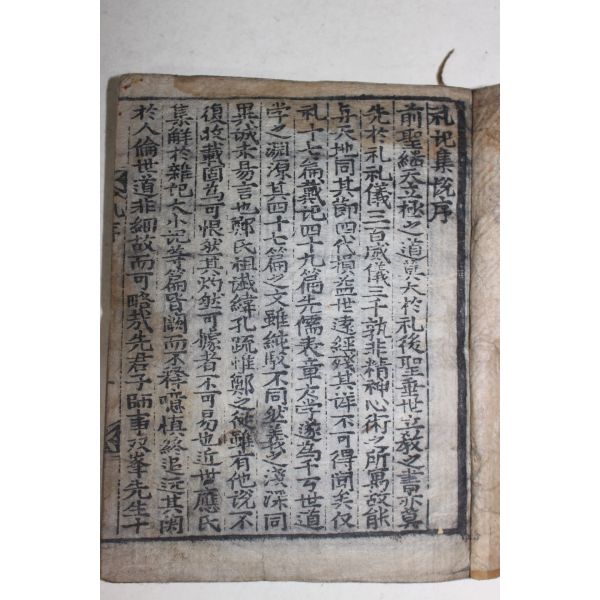 礼記集説序
前聖繼天立極之道莫大於礼後聖垂世立教之書亦莫
先於礼礼儀三百威儀三千孰非精神心術之所寓故能
与天地同其節四代損益世遠經殘其詳不可得聞矣仅
礼十七篇戴记四十九篇先儒表章大学遂為千万世道
学之淵源其四十七篇之文雖純駁不同然義之浅深同
異誠未易言也鄭氏祖讖緯孔疏惟鄭之従雖有他説不
復收載固為可恨然其灼然可據者不可易也近世應氏
集解於雜记大小记等篇皆闕而不释噫慎終追远其関
於人倫世道非細故而可略哉先君子師事双峯先生十